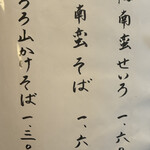 南蛮せいろ 一、六
南蛮そば 一、六
ろ山かけそば 一、三〇